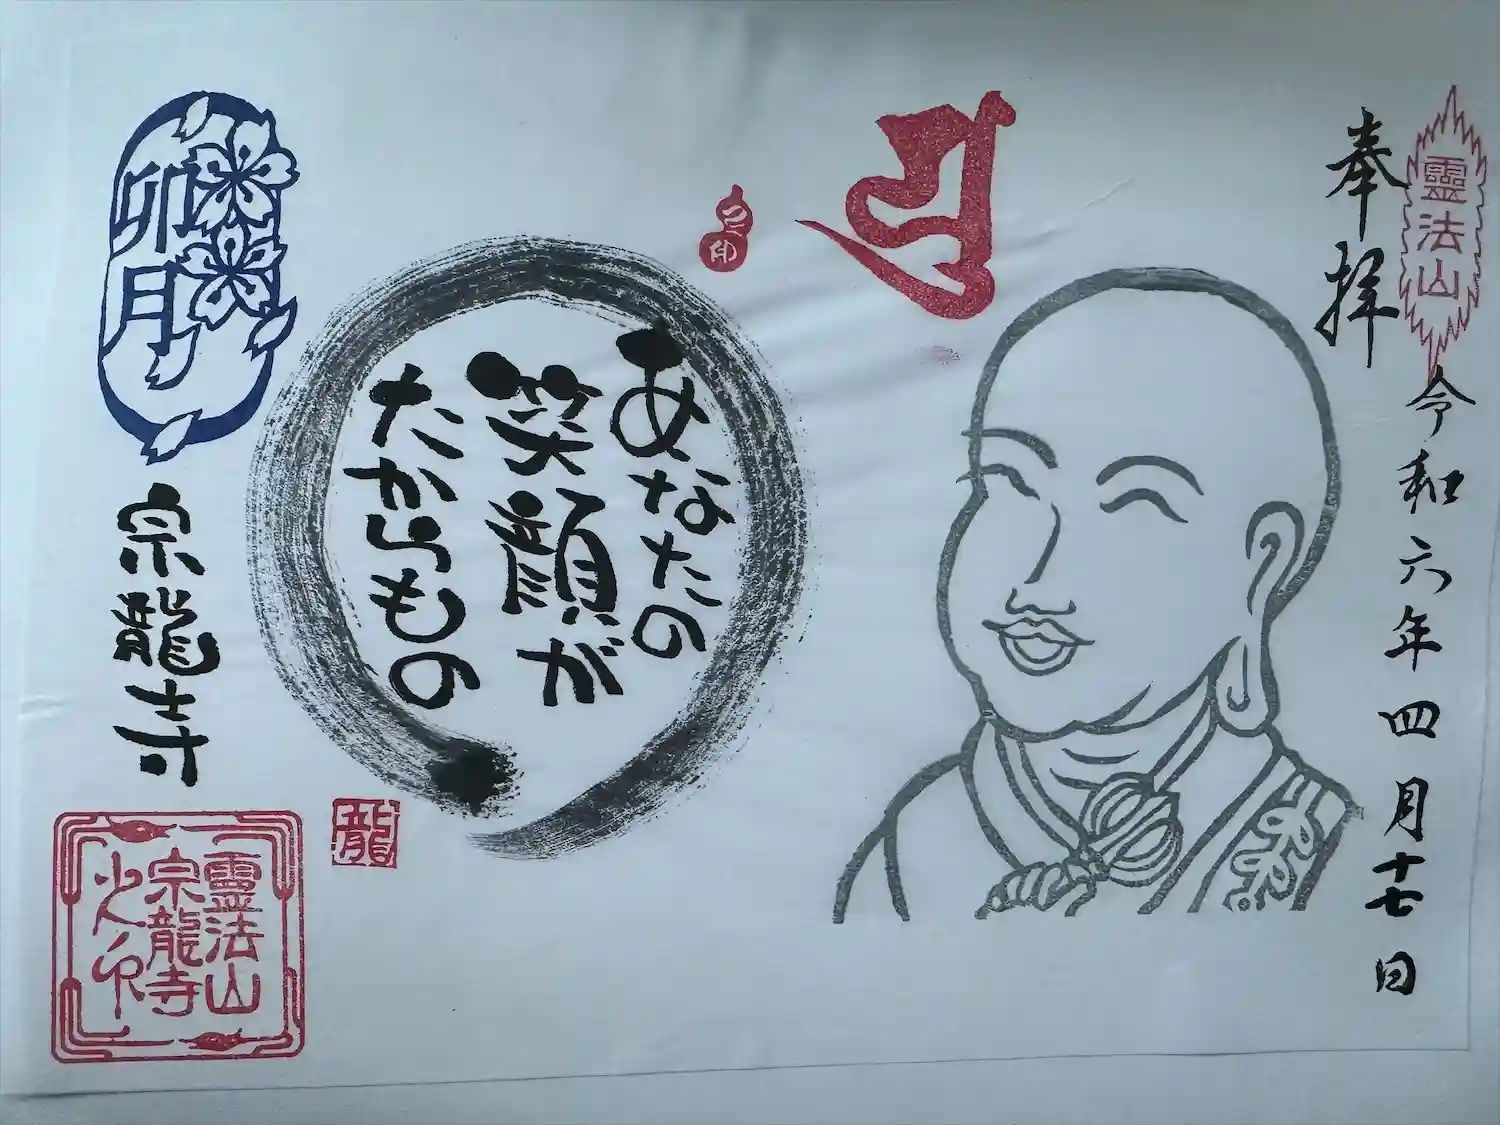 靈法山
奉拝
令和六年四月十七日
あなたの
笑顔が
たからもの
卯月
宗龍寺
龍
靈法山
宗龍寺
之印